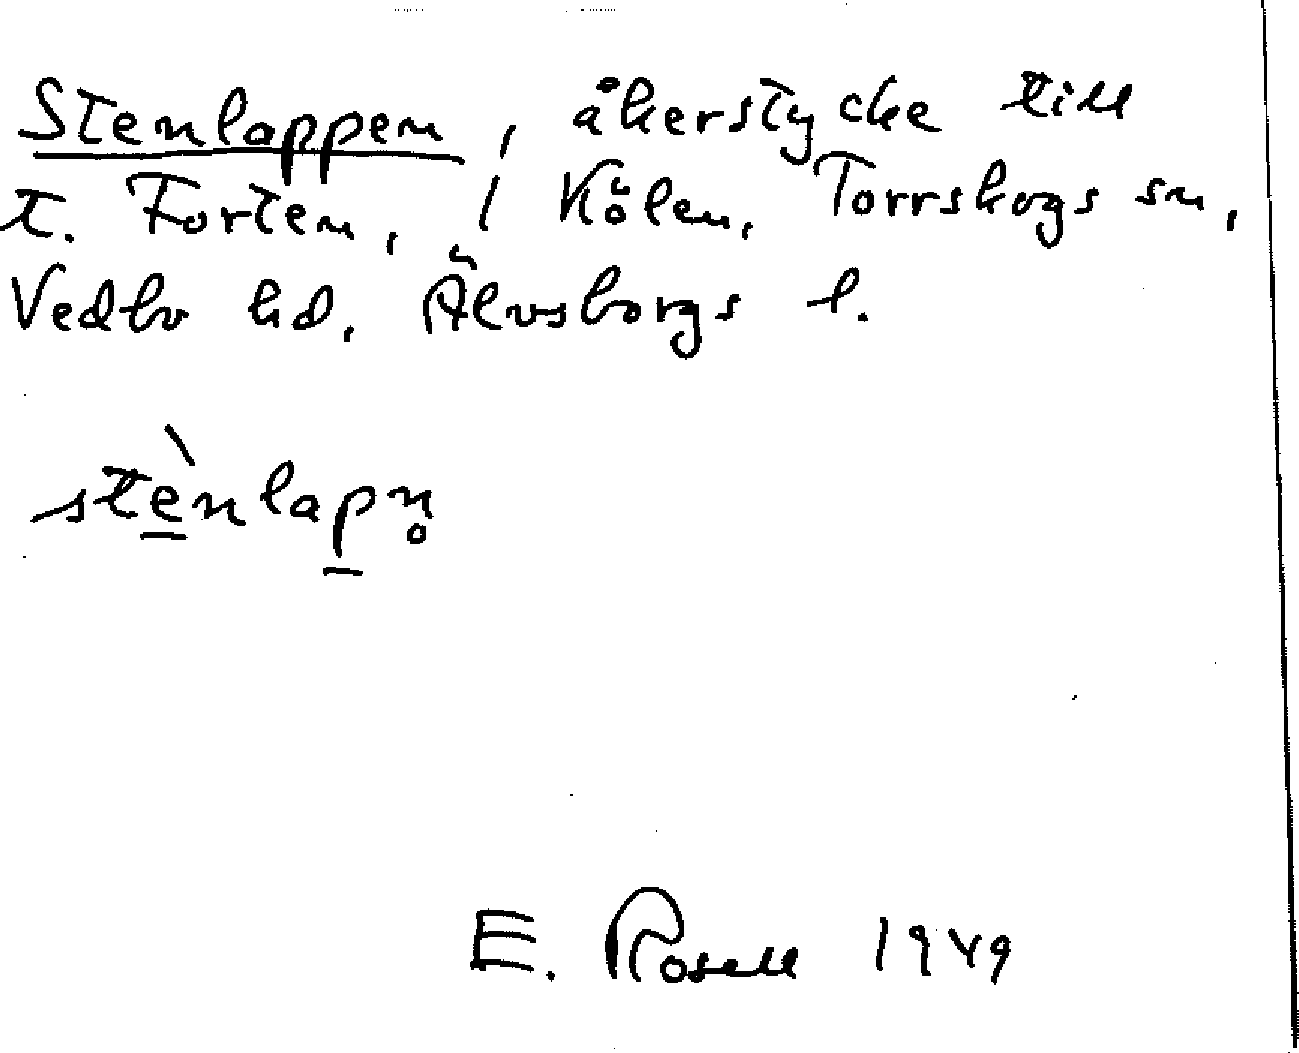 Stenlappen, åkerstycke till
t. Forten, 1 Kölen, Torrskogs sn,
Vedbo hd, Älvsborgs l.
stènlapn̥
E. Rosell 1949